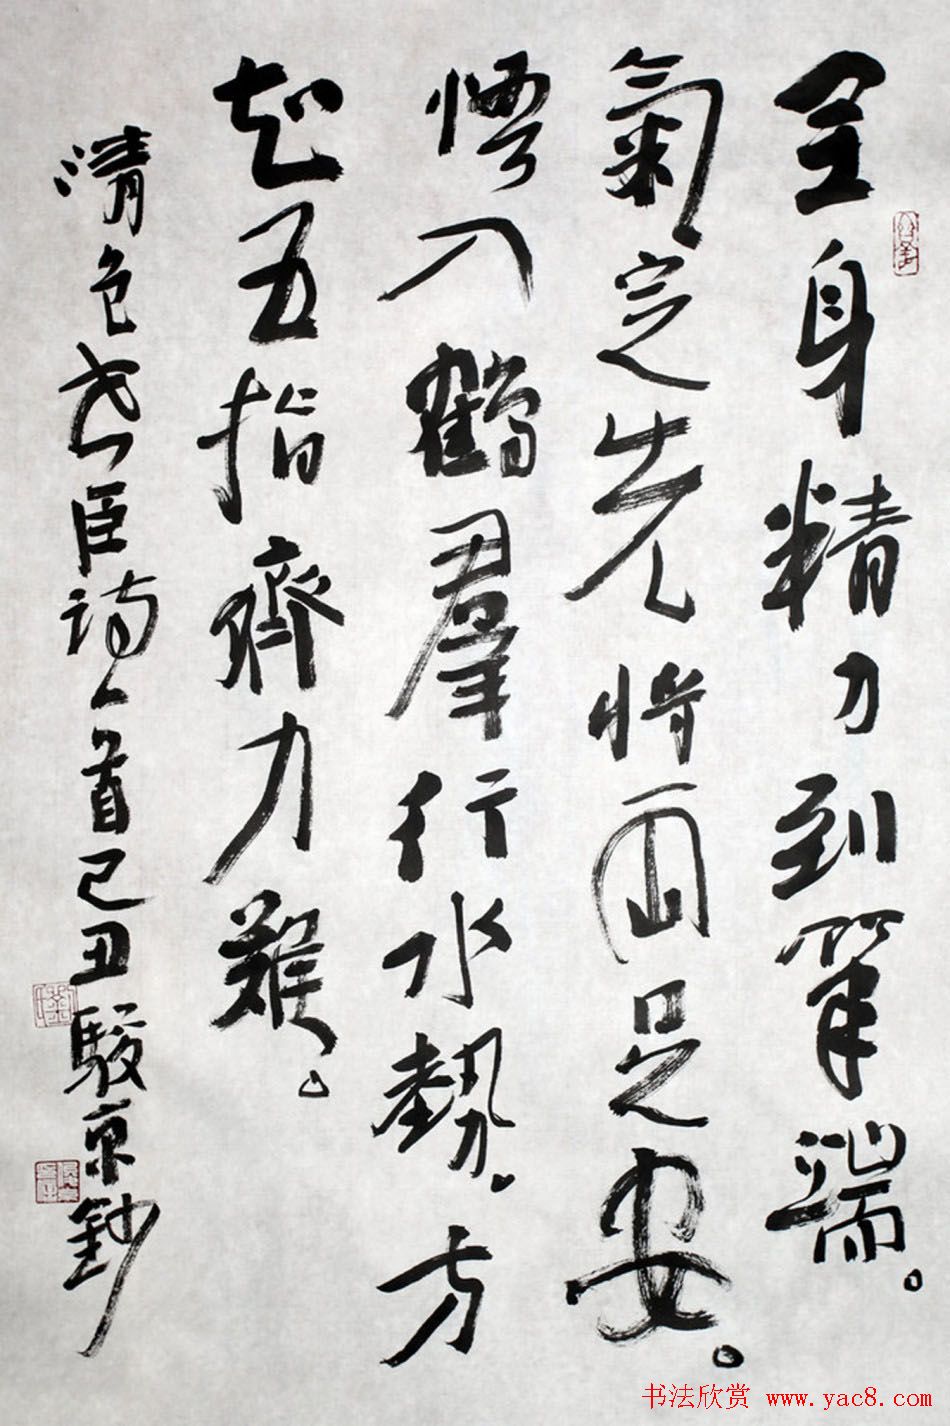 全身精力到筆端。
氣定先將兩足安。
悟入鶴羣行水勢。方
知五指齊力難。
清包世臣詩一首己丑駿京鈔
书法欣赏 www.yac8.com